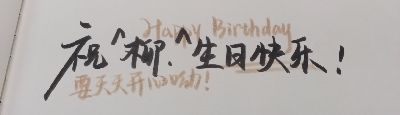 Happy Birthday
祝^柳.^生日快乐!
要天天开心哟!